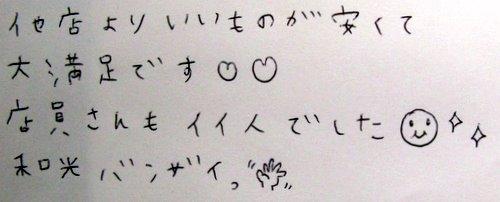 他店よりいいものが安くて
大満足です♡♡
店員さんもイイ人でした
和光バンザイっ